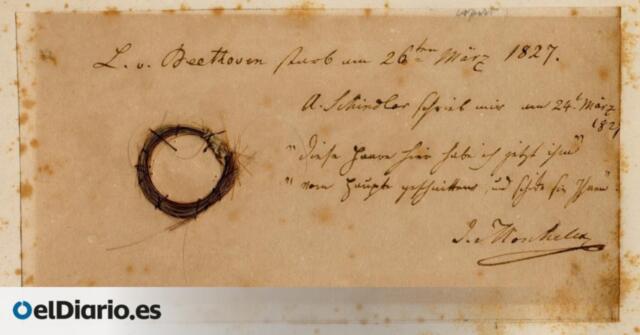 L. v. Beethoven starb am 26ten März 1827.
A. Schindler schrieb mir am 24t März
1827
"diese Haare hier habe ich jetzt ihm
"vom Haupte geschnitten, und schicke sie Ihnen
I. Moscheles
elDiario.es